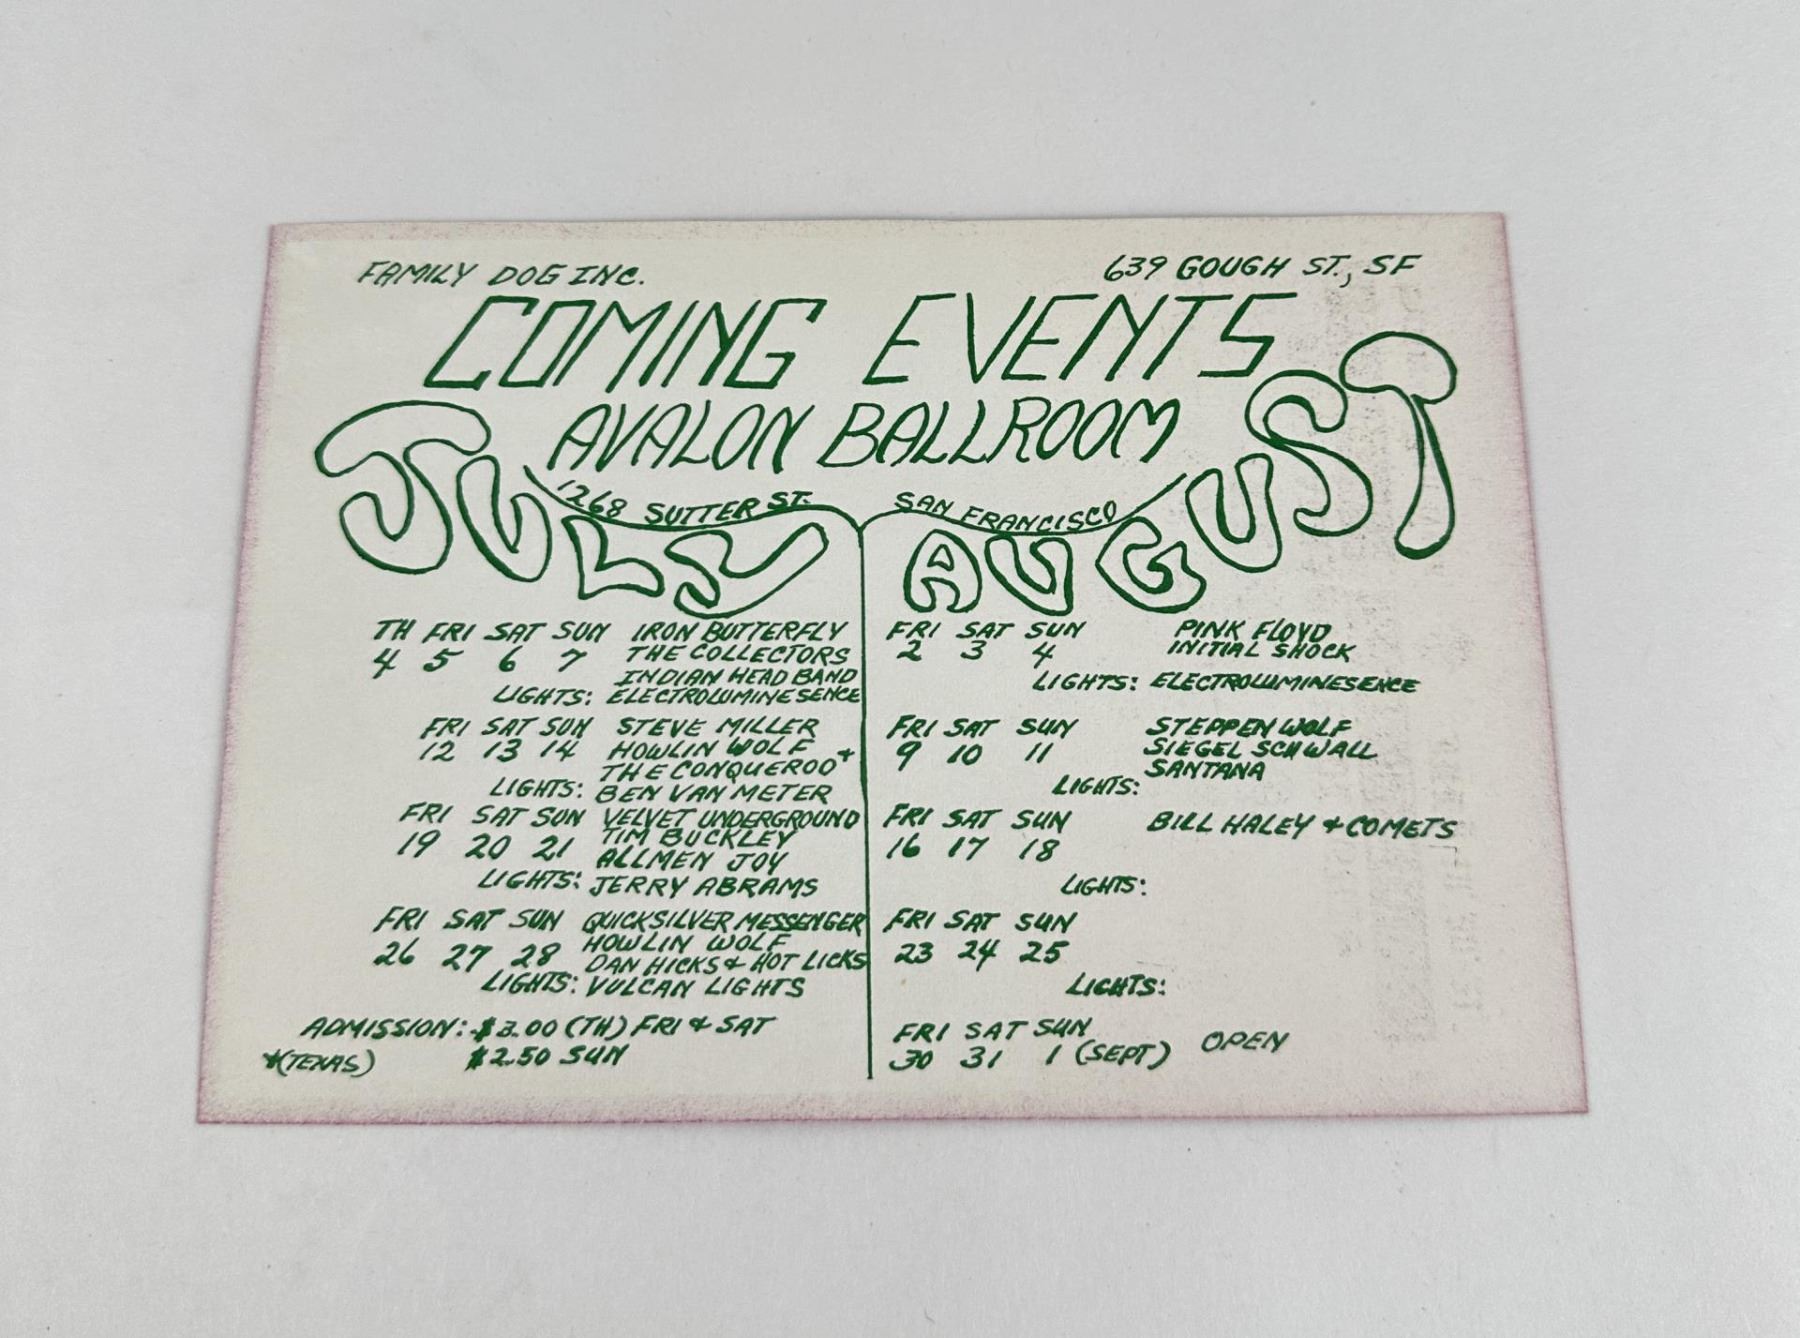 FAMILY DOG INC.
639 GOUGH ST., SF
COMING EVENTS
AVALON BALLROOM
1268 SUTTER ST. SAN FRANCISCO
JULY
TH FRI SAT SUN IRON BUTTERFLY
4 5 6 7 THE COLLECTORS
INDIAN HEAD BAND
LIGHTS: ELECTROLUMINESENCE
FRI SAT SUN STEVE MILLER
12 13 14 HOWLIN WOLF
THE CONQUEROO*
LIGHTS: BEN VAN METER
FRI SAT SUN VELVET UNDERGROUND
19 20 21 TIM BUCKLEY
ALLMEN JOY
LIGHTS: JERRY ABRAMS
FRI SAT SUN QUICKSILVER MESSENGER
26 27 28 HOWLIN WOLF
DAN HICKS & HOT LICKS
LIGHTS: VULCAN LIGHTS
ADMISSION: $3.00 (TH) FRI & SAT
*(TEXAS) $2.50 SUN
AUGUST
FRI SAT SUN PINK FLOYD
2 3 4 INITIAL SHOCK
LIGHTS: ELECTROLUMINESENCE
FRI SAT SUN STEPPENWOLF
9 10 11 SIEGEL SCHWALL
SANTANA
LIGHTS:
FRI SAT SUN BILL HALEY & COMETS
16 17 18
LIGHTS:
FRI SAT SUN
23 24 25
LIGHTS:
FRI SAT SUN OPEN
30 31 1 (SEPT)